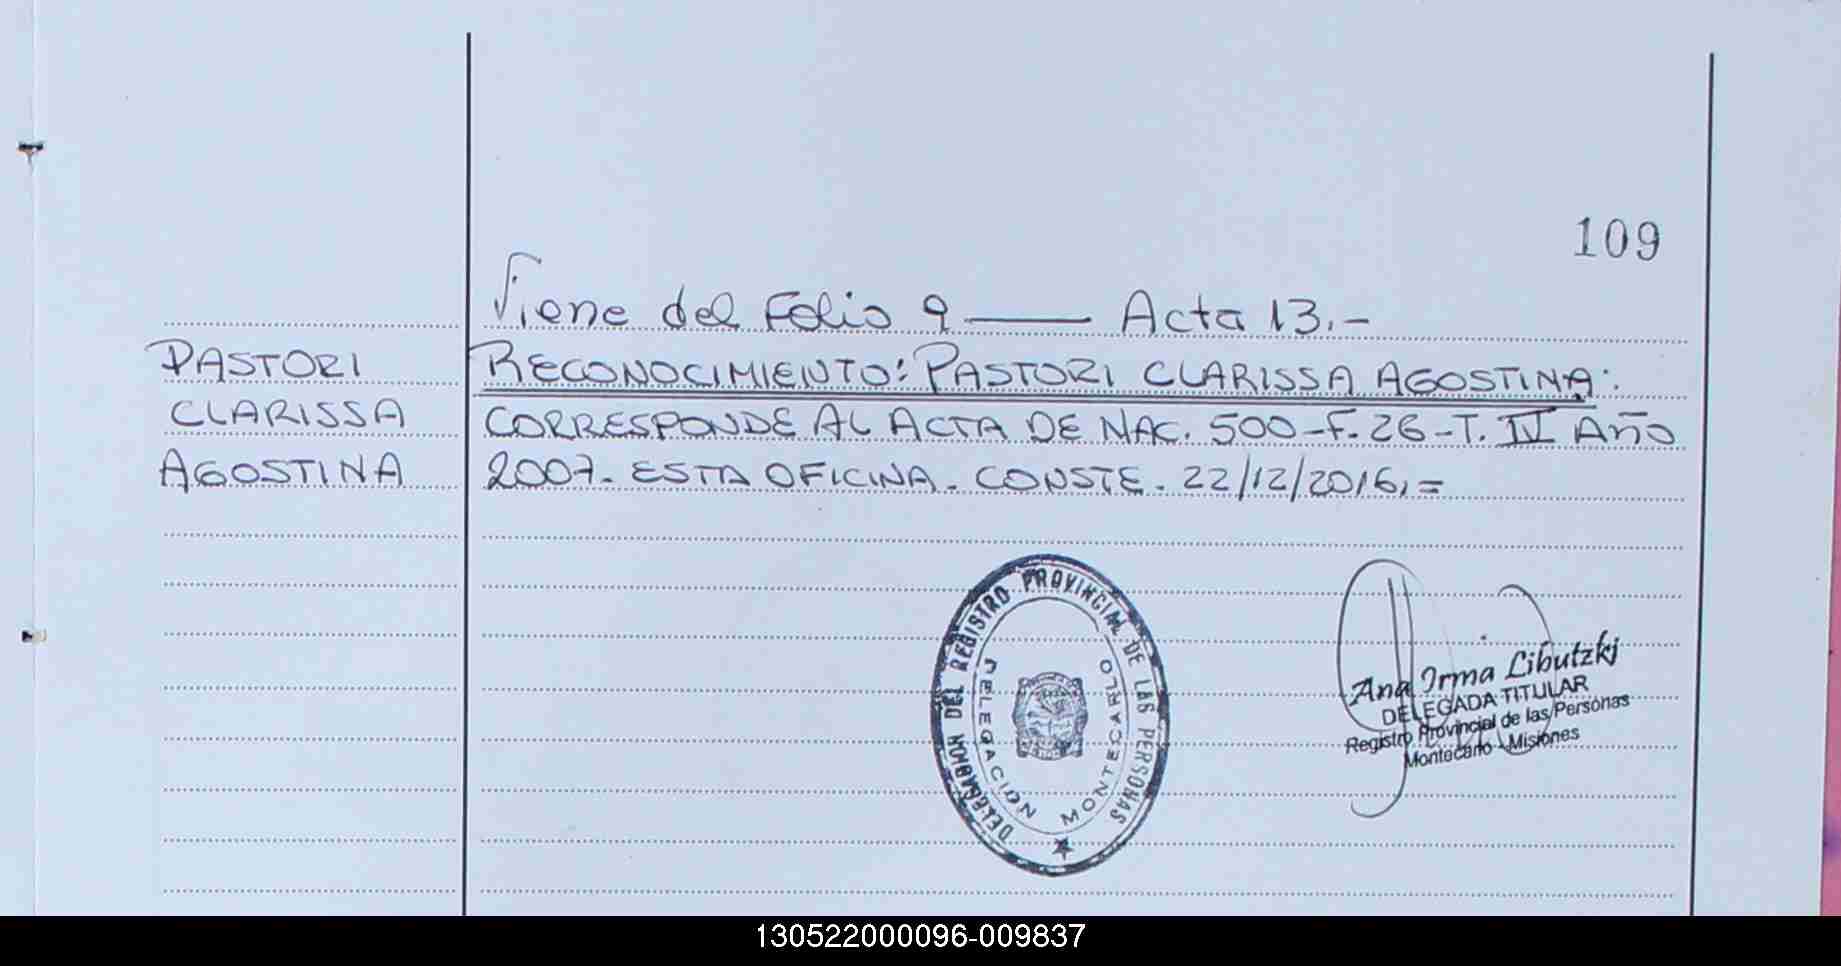 109
Viene del Folio 9 —— Acta 13.-
PASTORI
CLARISSA
AGOSTINA
RECONOCIMIENTO: PASTORI CLARISSA AGOSTINA:
CORRESPONDE AL ACTA DE NAC. 500-F. 26-T. IV Año
2007. ESTA OFICINA. CONSTE. 22/12/2016.=
DELEGACION DEL REGISTRO PROVINCIAL DE LAS PERSONAS
DELEGACION MONTECARLO
Ana Irma Libutzki
DELEGADA TITULAR
Registro Provincial de las Personas
Montecarlo - Misiones
130522000096-009837